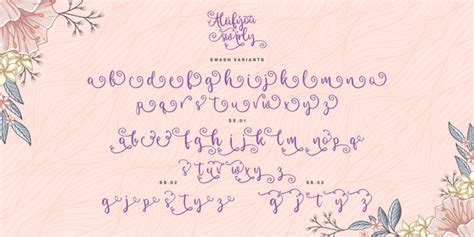 swirly
SWASH VARIANTS
a b c d e f g h i j k l m n o
p q r s t u v w x y z
SS.01
g h i j k l m n o p q
s t u v w x y z
SS.02 SS.03
g j p s t y z g j t y z